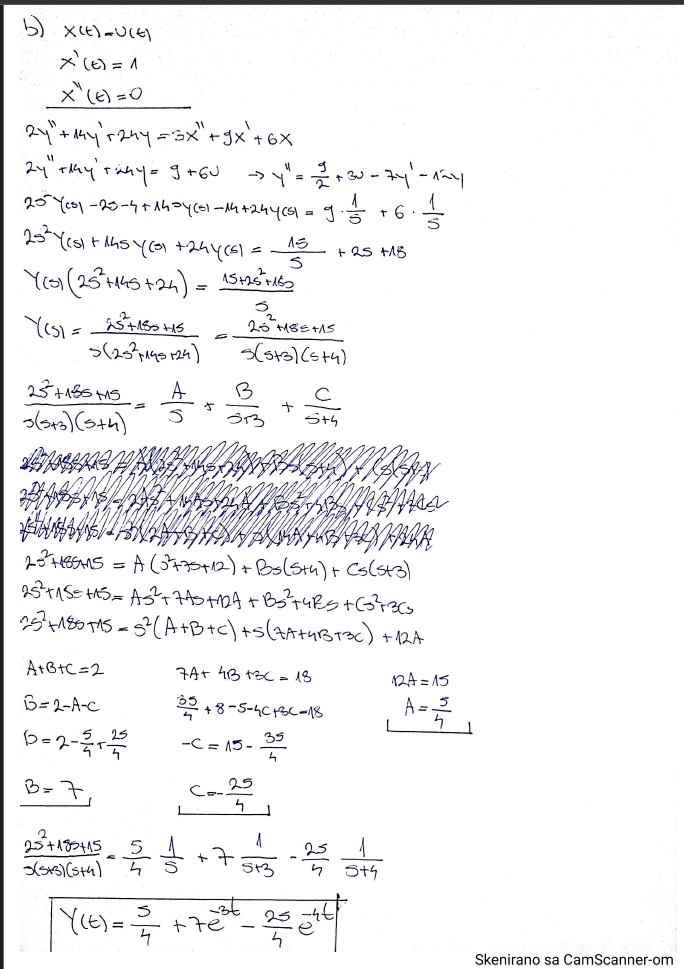 b) x(t)=U(t)
x'(t)=1
x''(t)=0
2y''+14y'+24y=3x''+9x'+6x
2y''+14y'+24y= 9+6U → y''= 9/2 +3U - 7y' - 12y
2s²Y(s) -2s-4+14sY(s)-14+24Y(s) = 9·1/s + 6·1/s
2s²Y(s)+14sY(s)+24Y(s) = 15/s + 2s+18
Y(s)(2s²+14s+24) = (15+2s²+18s)/s
Y(s) = (2s²+18s+15)/(s(2s²+14s+24)) = (2s²+18s+15)/(s(s+3)(s+4))
(2s²+18s+15)/(s(s+3)(s+4)) = A/s + B/(s+3) + C/(s+4)
2s²+18s+15 = A(s²+7s+12)+Bs(s+4)+Cs(s+3)
2s²+18s+15= As²+7As+12A+Bs²+4Bs+Cs²+3Cs
2s²+18s+15=s²(A+B+C)+s(7A+4B+3C)+12A
A+B+C=2 7A+4B+3C=18 12A=15
B=2-A-C 35/4+8-5-4C+3C=18 A=5/4
B=2-5/4+25/4 -C=15-35/4
B=7 C=-25/4
(2s²+18s+15)/(s(s+3)(s+4)) = 5/4 1/s + 7 1/(s+3) - 25/4 1/(s+4)
Y(t)=5/4+7e^-3t-25/4 e^-4t
Skenirano sa CamScanner-om